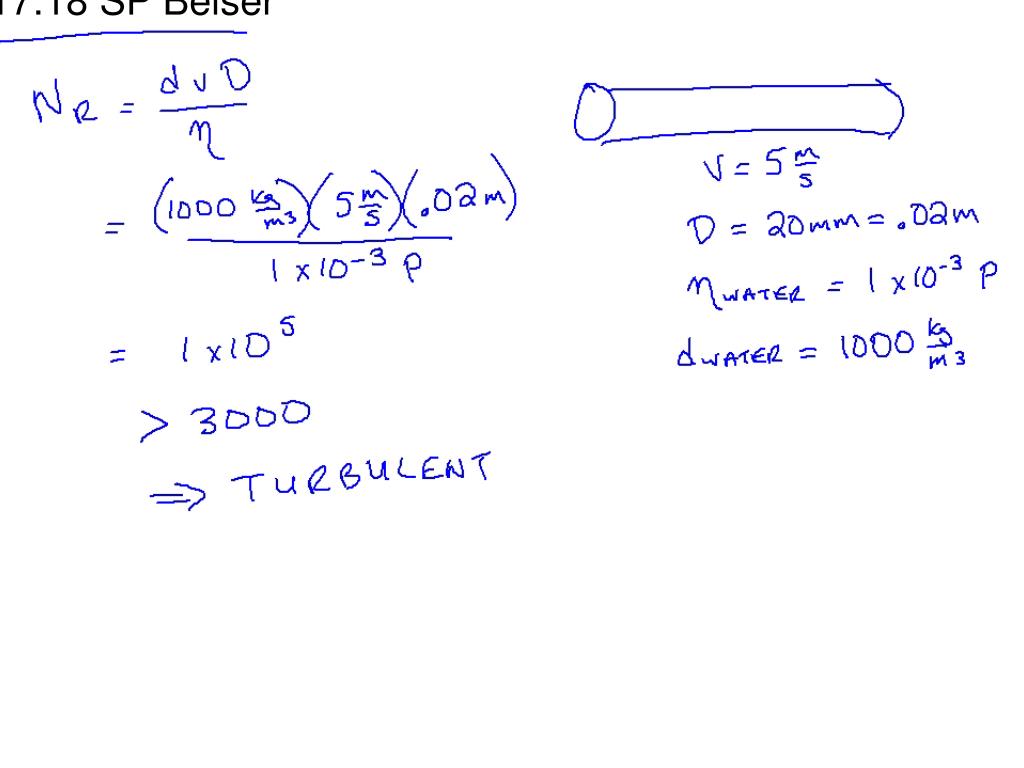 17.18 SP Belser
N_R = d v D / η
= (1000 kg/m³)(5 m/s)(.02m) / 1 × 10⁻³ P
= 1 × 10⁵
> 3000
⇒ TURBULENT
v = 5 m/s
D = 20mm = .02m
η WATER = 1 × 10⁻³ P
d WATER = 1000 kg/m³